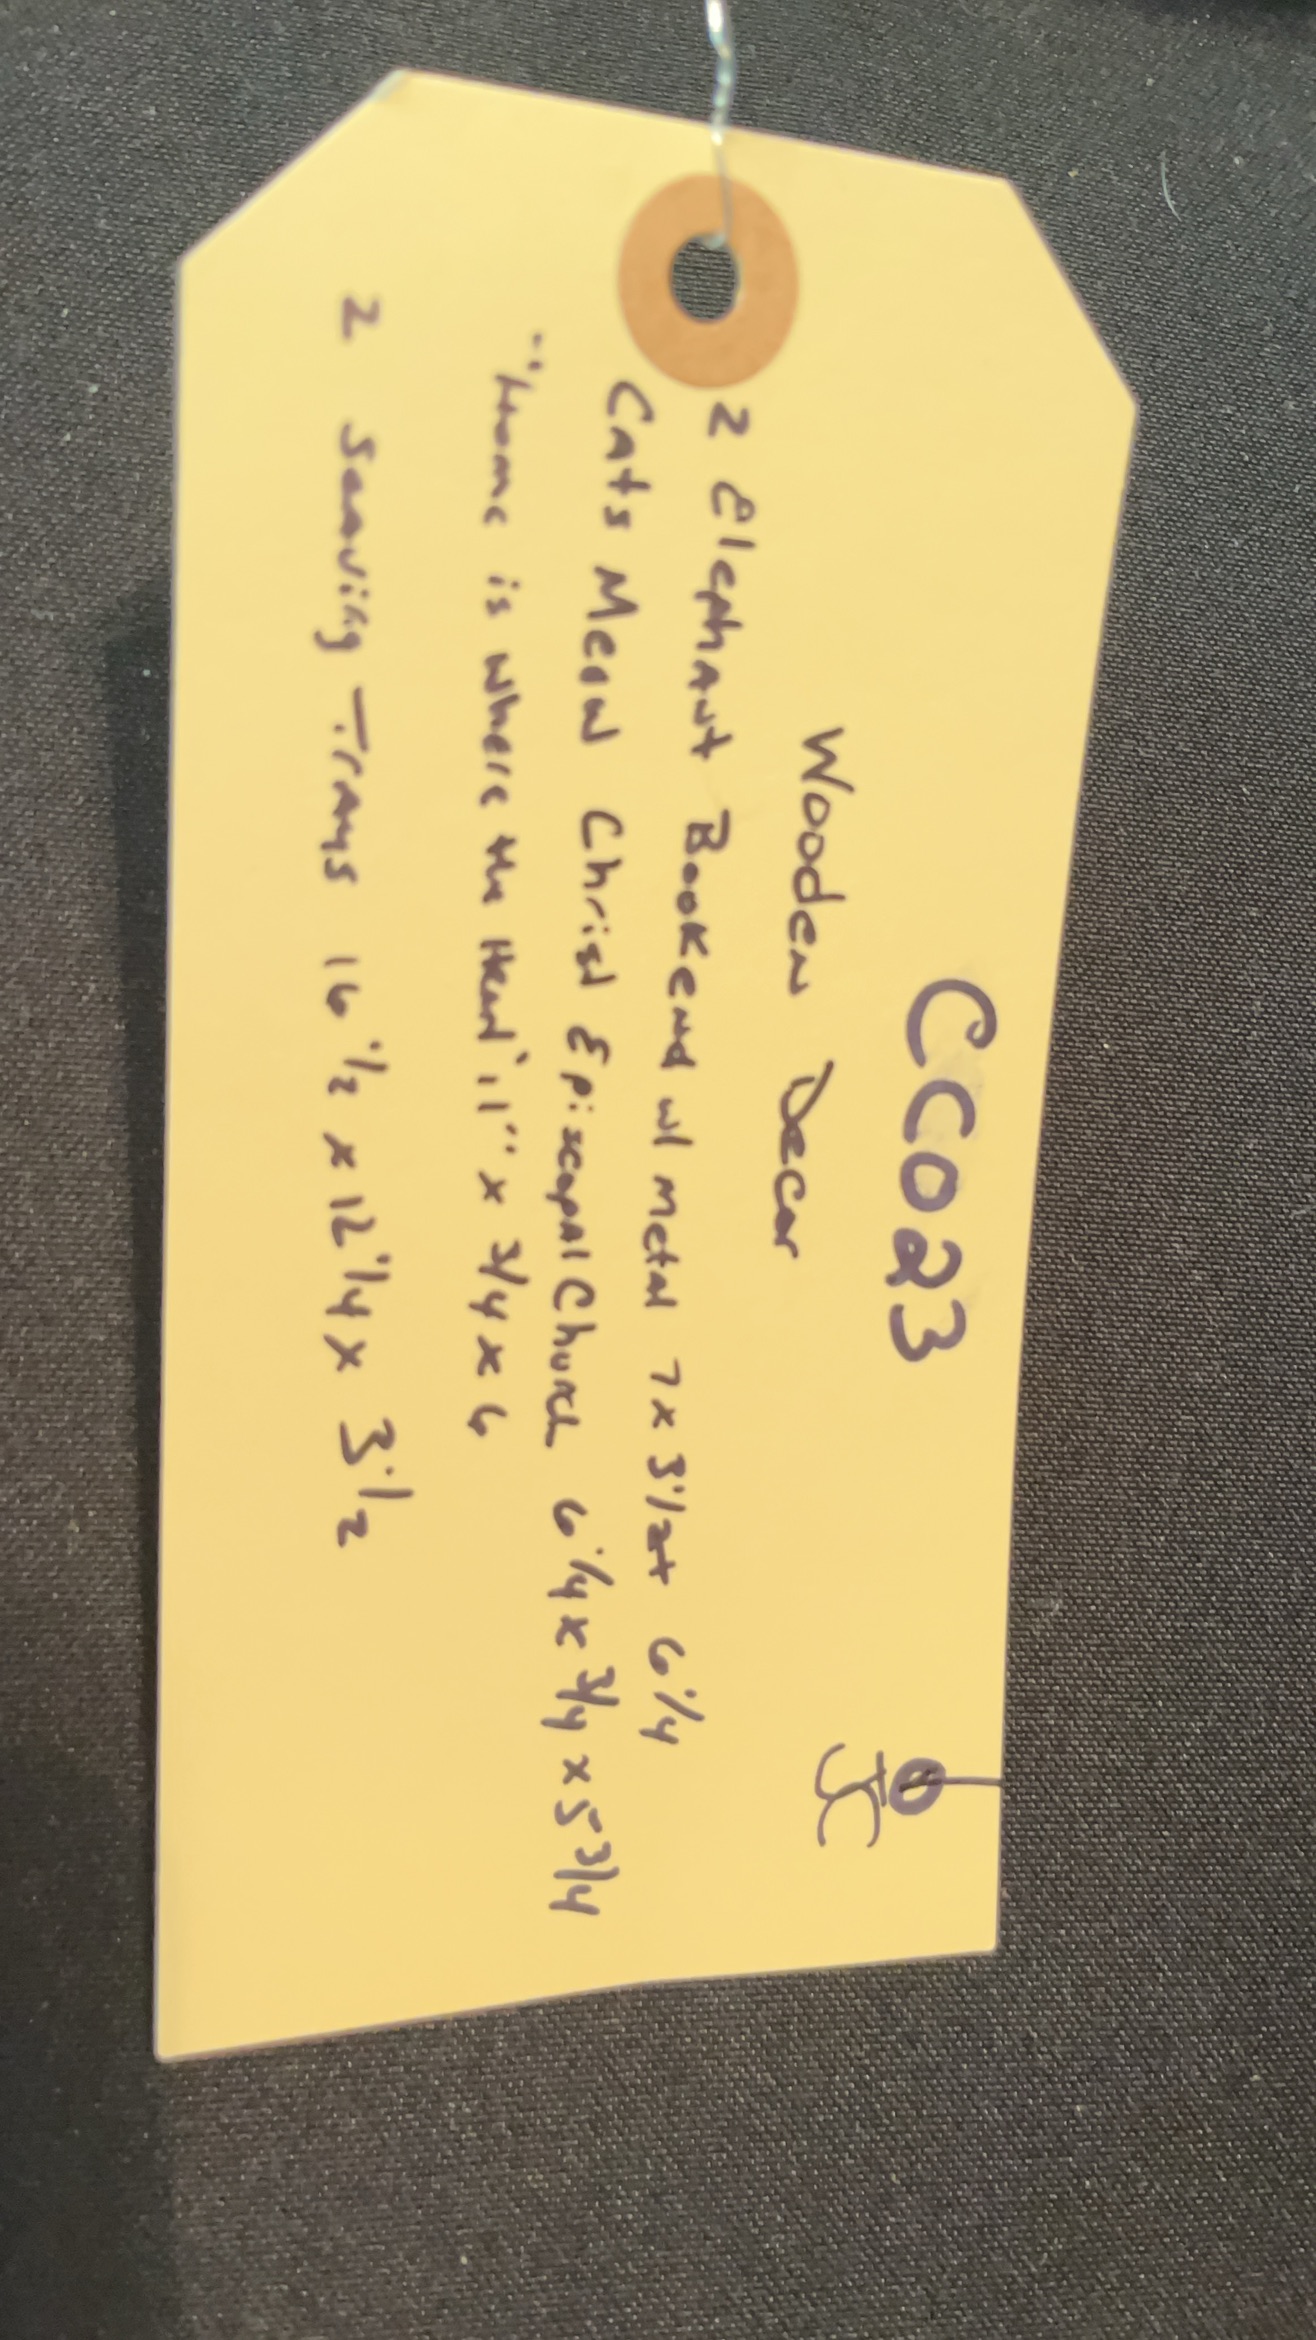 CC023
JC
Wooden Decor
2 Elephant Bookend w/ Metal 7 x 3 1/2 x 6 1/4
Cats Meow Christ Episcopal Church 6 1/4 x 3/4 x 5 3/4
"Home is Where the Heart" 11" x 3/4 x 6
2 Serving Trays 16 1/2 x 12 1/4 x 3 1/2